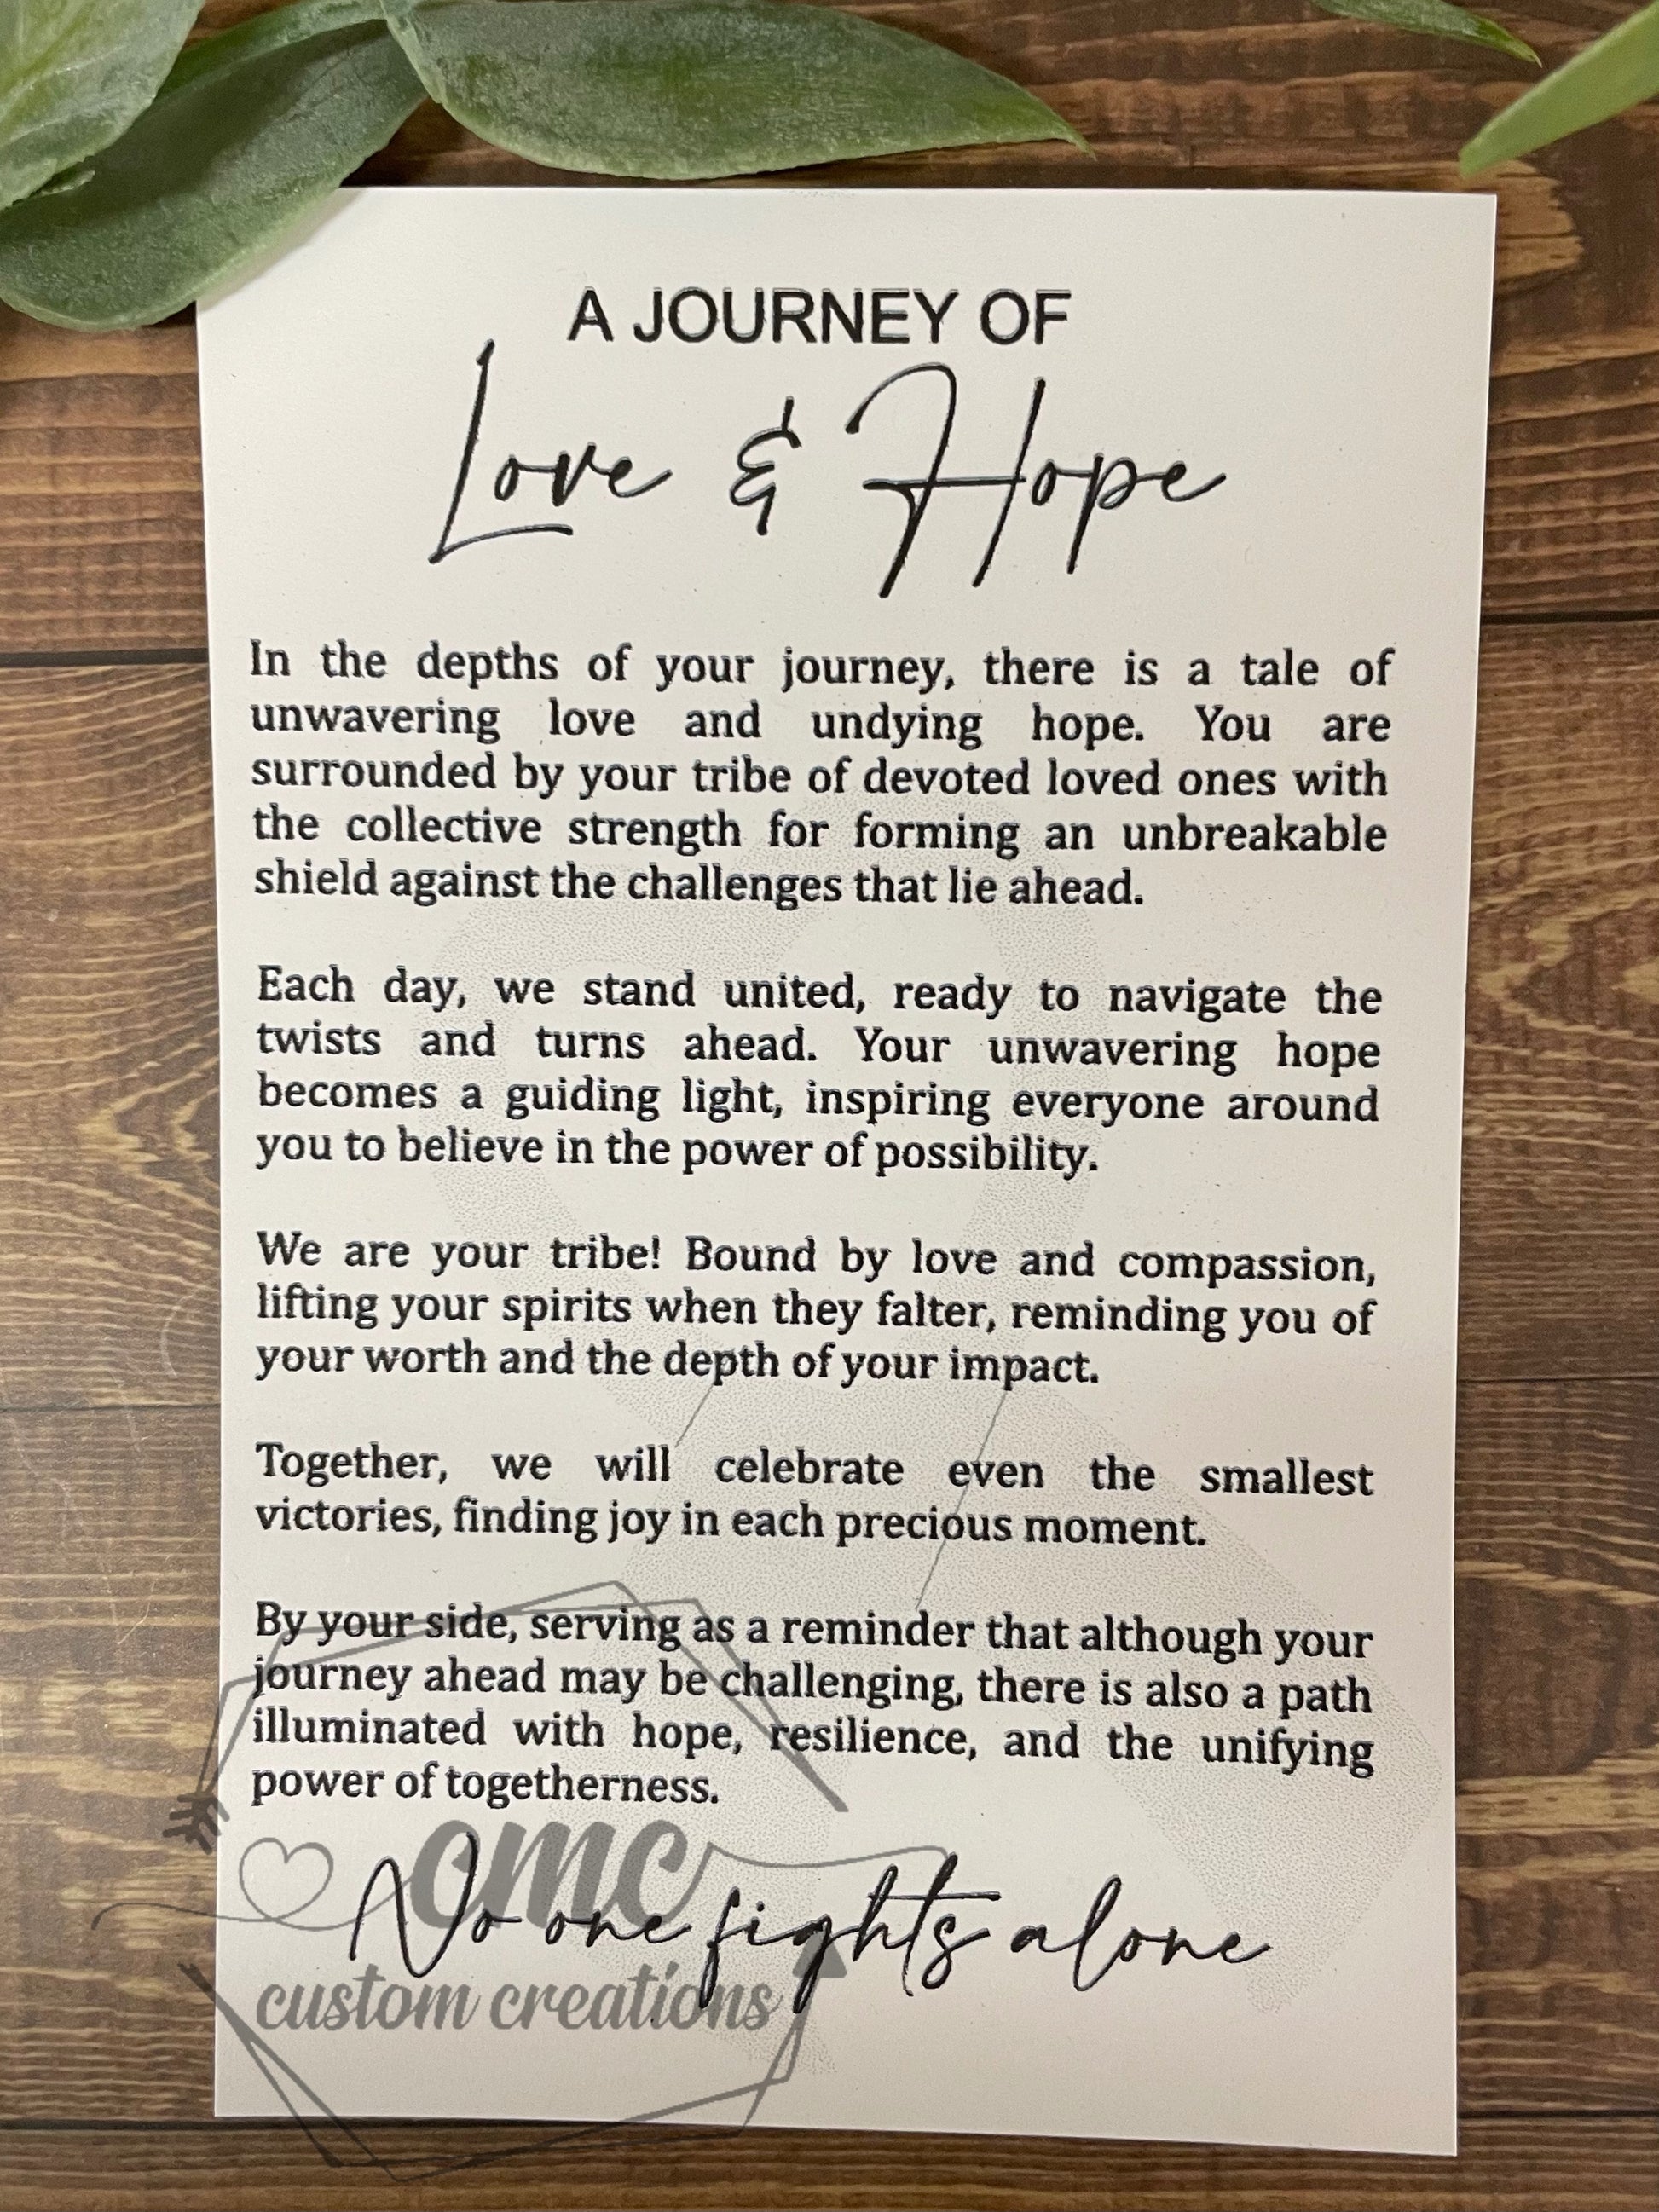 A JOURNEY OF
Love & Hope
In the depths of your journey, there is a tale of
unwavering love and undying hope. You are
surrounded by your tribe of devoted loved ones with
the collective strength for forming an unbreakable
shield against the challenges that lie ahead.
Each day, we stand united, ready to navigate the
twists and turns ahead. Your unwavering hope
becomes a guiding light, inspiring everyone around
you to believe in the power of possibility.
We are your tribe! Bound by love and compassion,
lifting your spirits when they falter, reminding you of
your worth and the depth of your impact.
Together, we will celebrate even the smallest
victories, finding joy in each precious moment.
By your side, serving as a reminder that although your
journey ahead may be challenging, there is also a path
illuminated with hope, resilience, and the unifying
power of togetherness.
cmc
No one fights alone
custom creations